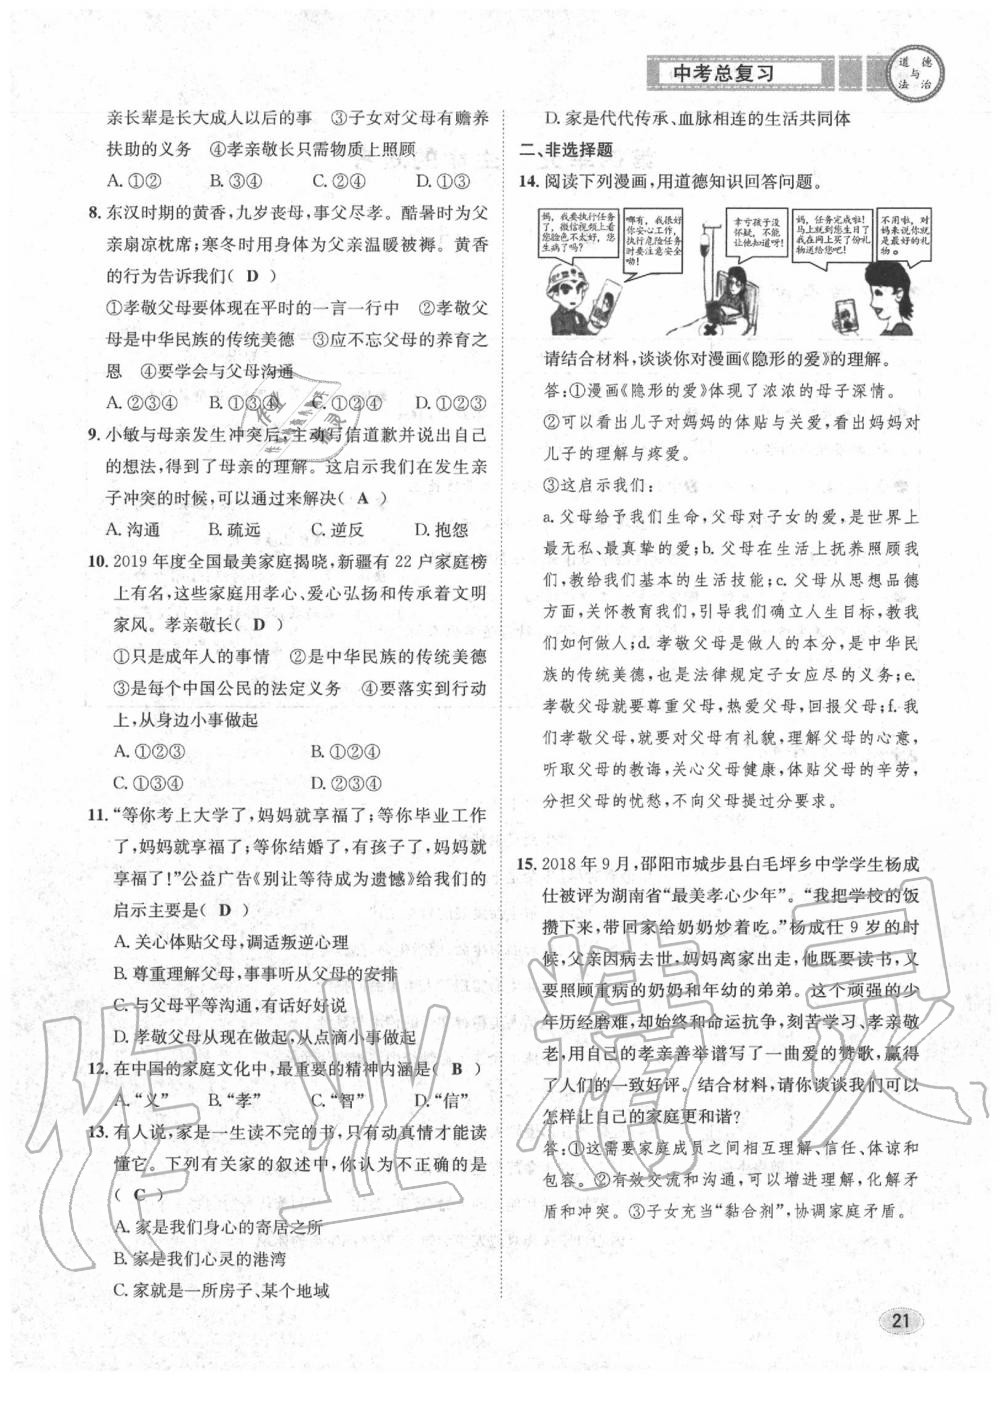 中考总复习
道德
与
法治
亲长辈是长大成人以后的事　③子女对父母有赡养
扶助的义务　④孝亲敬长只需物质上照顾
A. ①②　B. ③④　C. ①③　D. ②④
8. 东汉时期的黄香，九岁丧母，事父尽孝。酷暑时为父
亲扇凉枕席；寒冬时用身体为父亲温暖被褥。黄香
的行为告诉我们（ D ）
①孝敬父母要体现在平时的一言一行中　②孝敬父
母是中华民族的传统美德　③应不忘父母的养育之
恩　④要学会与父母沟通
A. ②③④　B. ①③④　C. ①②④　D. ①②③
9. 小敏与母亲发生冲突后，主动写信道歉并说出自己
的想法，得到了母亲的理解。这启示我们在发生亲
子冲突的时候，可以通过来解决（ A ）
A. 沟通　B. 疏远　C. 逆反　D. 抱怨
10. 2019 年度全国最美家庭揭晓，新疆有 22 户家庭榜
上有名，这些家庭用孝心、爱心弘扬和传承着文明
家风。孝亲敬长（ D ）
①只是成年人的事情　②是中华民族的传统美德
③是每个中国公民的法定义务　④要落实到行动
上，从身边小事做起
A. ①②③　B. ①②④
C. ①③④　D. ②③④
11. “等你考上大学了，妈妈就享福了；等你毕业工作
了，妈妈就享福了；等你结婚了，有孩子了，妈妈就
享福了！”公益广告《别让等待成为遗憾》给我们的
启示主要是（ D ）
A. 关心体贴父母，调适叛逆心理
B. 尊重理解父母，事事听从父母的安排
C. 与父母平等沟通，有话好好说
D. 孝敬父母从现在做起，从点滴小事做起
12. 在中国的家庭文化中，最重要的精神内涵是（ B ）
A. “义”　B. “孝”　C. “智”　D. “信”
13. 有人说，家是一生读不完的书，只有动真情才能读
懂它。下列有关家的叙述中，你认为不正确的是
（ C ）
A. 家是我们身心的寄居之所
B. 家是我们心灵的港湾
C. 家就是一所房子、某个地域
D. 家是代代传承、血脉相连的生活共同体
二、非选择题
14. 阅读下列漫画，用道德知识回答问题。
妈，我要执行任务
啦，微信视频上看
您脸色不太好，您病
了吗？
哪有，我很好
你安心工作，
执行危险任务
时要注意安全
呦！
幸亏孩子没
怀疑，不能
让他知道呀！
妈，任务完成啦！
马上就到您生日了
我在网上买了份礼
物送给您吧！
不用啦，对
妈来说你
就是最好的礼
物。
请结合材料，谈谈你对漫画《隐形的爱》的理解。
答：①漫画《隐形的爱》体现了浓浓的母子深情。
②可以看出儿子对妈妈的体贴与关爱，看出妈妈对
儿子的理解与疼爱。
③这启示我们：
a. 父母给予我们生命，父母对子女的爱，是世界上
最无私、最真挚的爱；b. 父母在生活上抚养照顾我
们，教给我们基本的生活技能；c. 父母从思想品德
方面，关怀教育我们，引导我们确立人生目标，教我
们如何做人；d. 孝敬父母是做人的本分，是中华民
族的传统美德，也是法律规定子女应尽的义务；e.
孝敬父母就要尊重父母，热爱父母，回报父母；f. 我
们孝敬父母，就要对父母有礼貌，理解父母的心意，
听取父母的教诲，关心父母健康，体贴父母的辛劳，
分担父母的忧愁，不向父母提过分要求。
15. 2018 年 9 月，邵阳市城步县白毛坪乡中学学生杨成
仕被评为湖南省“最美孝心少年”。“我把学校的饭
攒下来，带回家给奶奶炒着吃。”杨成仕 9 岁的时
候，父亲因病去世，妈妈离家出走，他既要读书，又
要照顾重病的奶奶和年幼的弟弟。这个顽强的少
年历经磨难，却始终和命运抗争，刻苦学习、孝亲敬
老，用自己的孝亲善举谱写了一曲爱的赞歌，赢得
了人们的一致好评。结合材料，请你谈谈我们可以
怎样让自己的家庭更和谐？
答：①这需要家庭成员之间相互理解、信任、体谅和
包容。②有效交流和沟通，可以增进理解，化解矛
盾和冲突。③子女充当“黏合剂”，协调家庭矛盾。
21
作业精灵